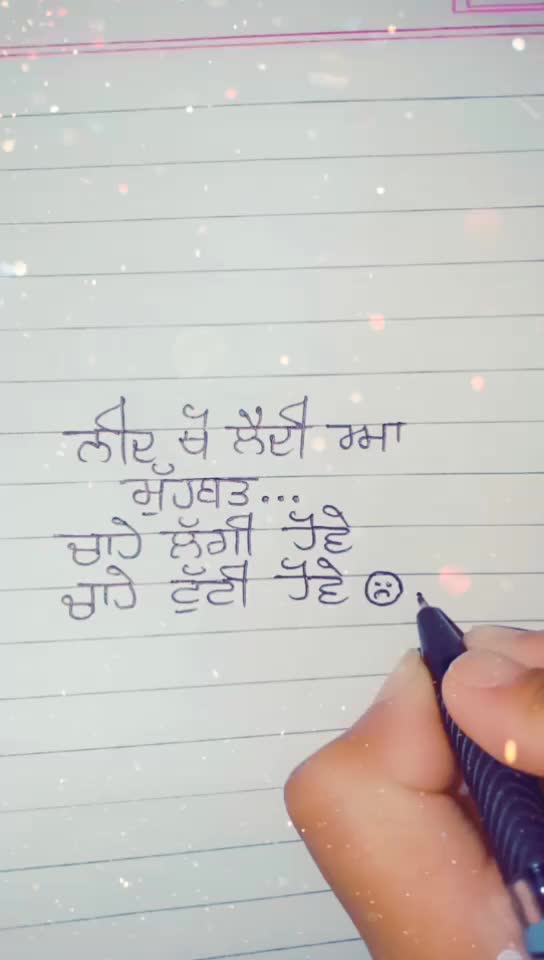 ਨੀਂਦ ਖੋ ਲੈਂਦੀ ਆ
ਮੁਹੱਬਤ...
ਚਾਹੇ ਲੱਗੀ ਹੋਵੇ
ਚਾਹੇ ਟੁੱਟੀ ਹੋਵੇ ☹